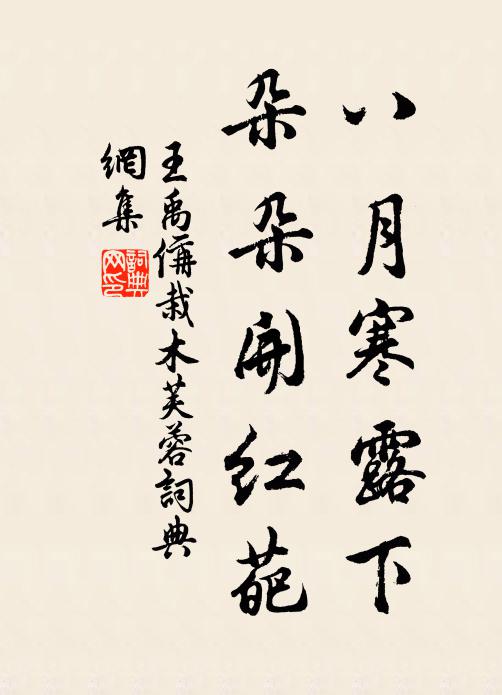 八月寒露下
朵朵開红葩
王禹偁栽木芙蓉詞典
網集
詞典
网印